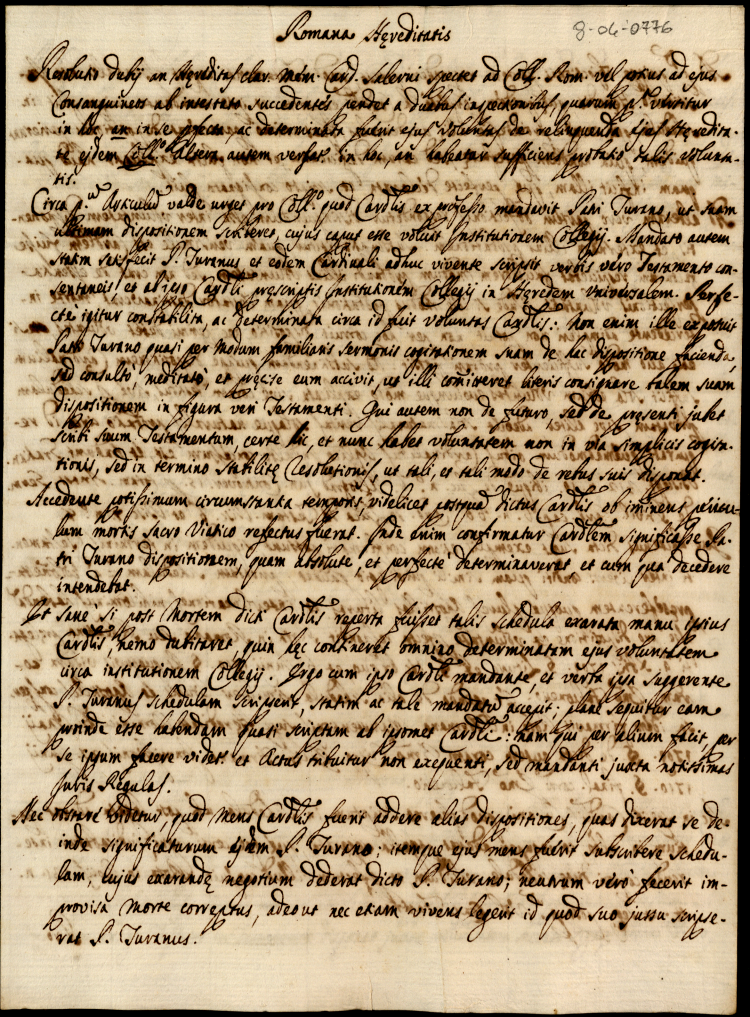 Romana Hęreditatis
8-04-0776
Resolutio dubij an Hęreditas clar. mem. Card. Salerni spectet ad Coll. Rom. vel potius ad ejus
Consanguineos ab intestato succedentes pendet a duabus inspectionibus, quarum pa. vertitur
in hoc, an in se perfecta, ac determinata fuerit ejus voluntas de relinquenda ejus Hęredita-
te ejdem Collo. altera autem versat. in hoc, an habeatur sufficiens probatio talis volunta-
tis.
Circa pum. Articulum valde urget pro Collo. quod Cardlis ex professo mandavit Patri Turano, ut suam
ultimam dispositionem scriberet, cujus caput esse voluit Institutionem Collegij. Mandato autem
statim satisfecit P. Turanus, et eodem Cardinali adhuc vivente scripsit verbis vero Testamento con-
sentaneis, et ab ipso Cardli pręscriptis institutionem Collegij in Hęredem universalem. Perfe-
cta igitur constabilita, ac determinata circa id fuit voluntas Cardlis: Non enim ille exposuit
Patri Turano quasi per modum familiaris sermonis cogitationem suam de hac dispositione facienda,
sed consulto, meditato, et pręcise eum accivit, ut illi comitteret literis consignare talem suam
dispositionem in figura veri Testamenti. Qui autem non de futuro, sed de pręsenti jubet
scribi suum Testamentum, certe hic, et nunc habet voluntatem non in via simplicis cogita-
tionis, sed in termino stabilitę resolutionis, ut tali, et tali modo de rebus suis disponat.
Accedente potissimum circumstantia temporis, videlicet postquã dictus Cardlis ob iminens pericu-
lum mortis sacro Viatico refectus fuerat. Inde enim confirmatur Cardlem significasse Pa-
tri Turano dispositionem, quam absolute, et perfecte determinaverat et cum qua decedere
intendebat.
Et sane si post mortem dicti Cardlis reperta fuisset talis schedula exarata manu ipsius
Cardlis, nemo dubitaret, quin hęc contineret omnino determinatam ejus voluntatem
circa institutionem Collegij. Ergo cum ipso Cardli mandante, et verba ipsa suggerente
P. Turanus schedulam scripserit, statim ac tale mandatũ accepit; plane sequitur eam
proinde esse habendam quasi scriptam ab ipsomet Cardli: nam qui per alium facit, per
se ipsum facere videt. et Actus tribuitur non exequenti, sed mandanti juxta notissimas
Juris Regulas.
Nec obstare videtur, quod mens Cardlis fuerit addere alias dispositiones, quas dixerat se de-
inde significaturum ejdem P. Turano; itemque ejus mens fuerit subscribere schedu-
lam, cujus exarandę negotium dederat dicto P. Turano; neutrum vero fecerit im-
provisa morte correptus, adeout nec etiam vivens legerit id quod suo jussu scripse-
rat P. Turanus.